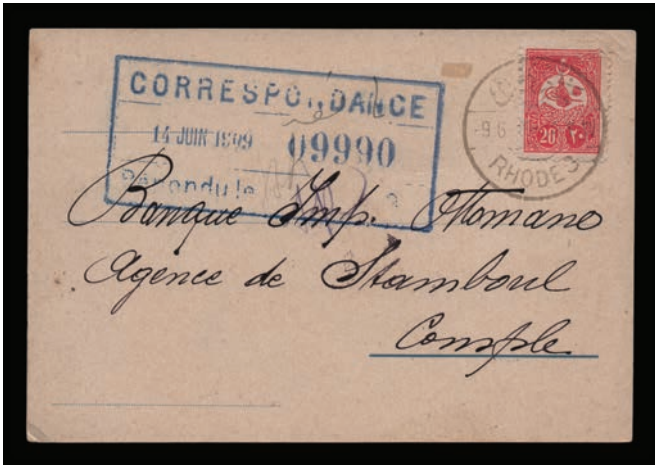 CORRESPONDANCE
14 JUIN 1909 09990
Répondu le
20 ٢٠
9 6
RHODES
Banque Imp. Ottomane
Agence de Stamboul
Constple